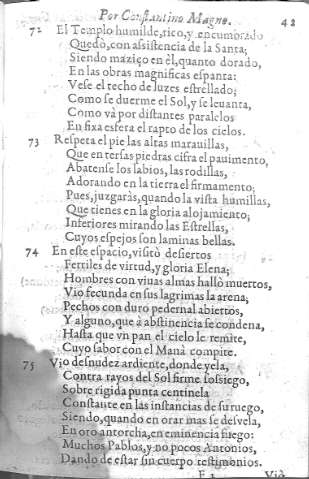 Por Constantino Magno. 42
72 El Templo humilde, rico, y encumbrado
Quedò, con assistencia de la Santa;
Siendo maziço en èl, quanto dorado,
En las obras magnificas espanta:
Vese el techo de luzes estrellado;
Como se duerme el Sol, y se leuanta,
Como và por distantes paralelos
En fixa esfera el rapto de los cielos.
73 Respeta el pie las altas marauillas,
Que en tersas piedras cifra el pauimento,
Abatense los labios, las rodillas,
Adorando en la tierra el firmamento;
Pues, juzgaràs, quando la vista humillas,
Que tienes en la gloria alojamiento;
Inferiores mirando las Estrellas,
Cuyos espejos son laminas bellas.
74 En este espacio, visitò desiertos
Fertiles de virtud, y gloria Elena;
Hombres con viuas almas hallò muertos,
Viò fecunda en sus lagrimas la arena;
Pechos con duro pedernal abiertos,
Y alguno, que à abstinencia se condena,
Hasta que vn pan el cielo le remite,
Cuyo sabor con el Manà compite.
75 Viò desnudez ardiente, donde yela,
Contra rayos del Sol firme sossiego,
Sobre rigida punta centinela
Constante en las instancias de su ruego,
Siendo, quando en orar mas se desvela,
En oro antorcha, en eminencia fuego:
Muchos Pablos, y no pocos Antonios,
Dando de estar sin cuerpo testimonios.
Viò